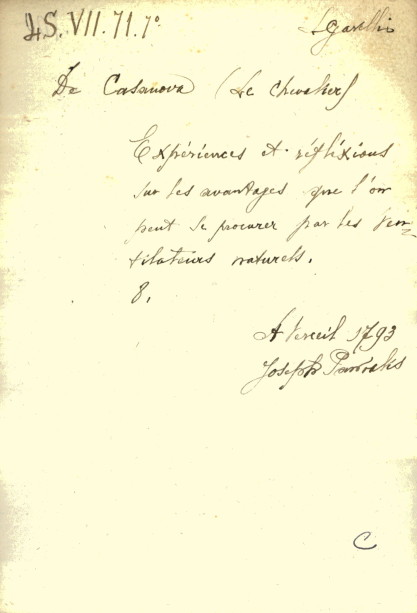 4S. VII. 71. 7°
De Casanova (Le Chevalier)
Expériences et réfléxions
sur les avantages que l'on
peut se procurer par les Ven-
tilateurs naturels.
8.
A Verceil 1793
Joseph
C